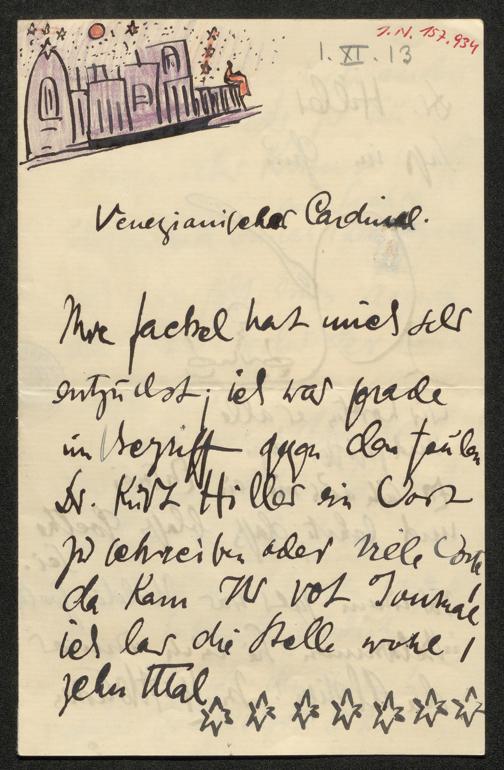 I.N. 157.934
1. XI. 13
Venezianischer Cardinal.
Ihre Fackel hat mich sehr
entzückt; ich war grade
im Begriff gegen den faulen
Dr. Kurt Hiller ein Wort
zu schreiben oder viele Worte
da kam Ihr rot Journal
ich las die Stelle wohl
zehn Mal